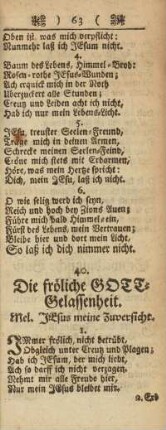 63
Oben ist, was mich verpflicht:
Nunmehr laß ich JEsum nicht.
4.
Baum des Lebens, Himmel-Brod:
Rosen-rothe JEsus-Wunden;
Ach erquick mich in der Noth
Verzuckert alle Stunden;
Creutz und Leiden acht ich nicht,
Hab ich nur mein Lebens-Licht.
5.
JEsu, treuster Seelen-Freund,
mich in deinen Armen,
Schrecke meinen Seelen-Feind,
Cröne mich stets mit Erbarmen,
Höre, was mein Hertze spricht:
Dich, mein JEsu, laß ich nicht.
6.
O wie selig werd ich seyn,
Reich und hoch bey Zions Auen;
Führe mich bald Himmel-ein,
Fürst des Lebens, mein Vertrauen;
Bleibe hier und dort mein Licht.
So laß ich dich nimmer nicht.
40.
Die fröliche GOTT-
Gelassenheit.
Mel. JEsus meine Zuversicht.
1.
IMmer frölich, nicht betrübt,
Obgleich unter Creutz und Plagen;
Hab ich JEsum, der mich liebt,
Ach so darff ich nicht verzagen.
Nehmt mir alle Freude hier,
Nur mein JEsus bleibet mir.
2.